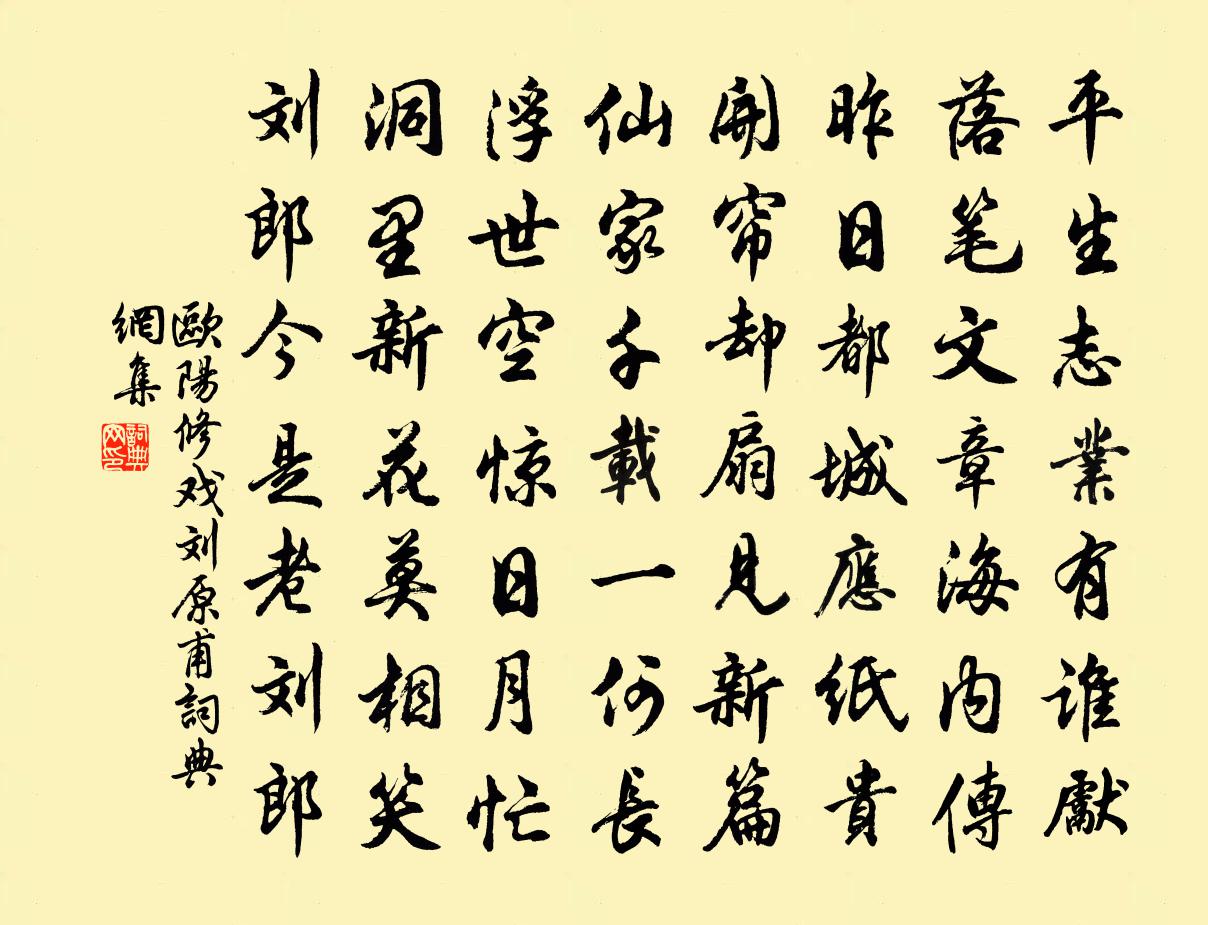 平生志業有谁獻
落笔文章海内傳
昨日都城應紙貴
開帘却扇見新篇
仙家千載一何長
浮世空惊日月忙
洞里新花莫相笑
刘郎今是老刘郎
歐陽修戏刘原甫詞典
網集
詞典网印